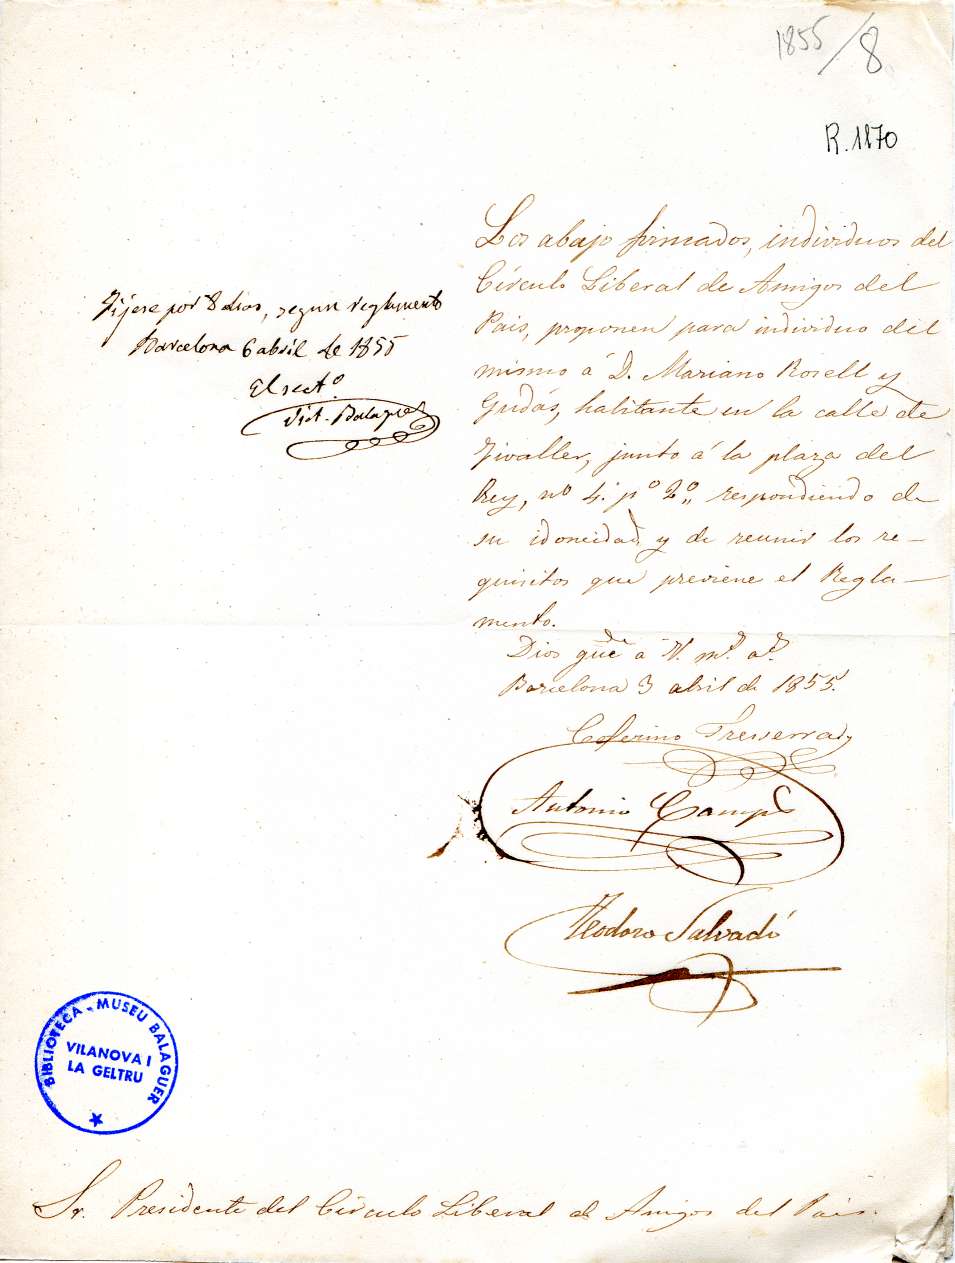 1855/8
R.1870
Los abajo firmados, individuos del
Círculo Liberal de Amigos del
Pais, proponen para individuo del
mismo á D. Mariano Rosell y
Gudás, habitante en la calle de
Fivaller, junto á la plaza del
Rey, nº 4. pº 2º,, respondiendo de
su idoneidad, y de reunir los re-
quisitos que previene el Regla-
mento.
Dios gue á V. ms. as.
Barcelona 3 abril de 1855.
Ceferino Tresserra
Antonio Camps
Teodoro Salvadó
Fijese por 8 dias, segun reglamento
Barcelona 6 abril de 1855
El secto.
Vict. Balaguer
BIBLIOTECA - MUSEU BALAGUER
VILANOVA I
LA GELTRU
Sr. Presidente del Círculo Liberal de Amigos del Pais.